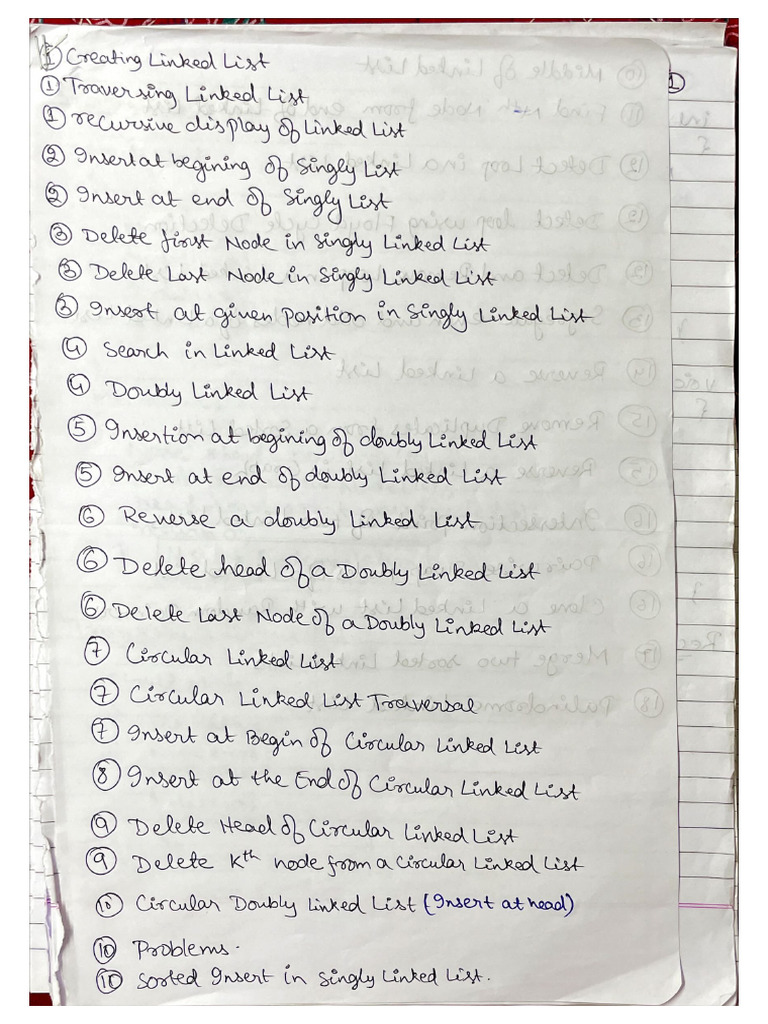 ① Creating Linked List
① Traversing Linked List
① recursive display of Linked List
② Insert at begining of Singly List
② Insert at end of Singly List
③ Delete first Node in Singly Linked List
③ Delete Last Node in Singly Linked List
③ Insert at given Position in Singly Linked List
④ Search in Linked List
④ Doubly Linked List
⑤ Insertion at begining of doubly Linked List
⑤ Insert at end of doubly Linked List
⑥ Reverse a doubly Linked List
⑥ Delete head of a Doubly Linked List
⑥ Delete Last Node of a Doubly Linked List
⑦ Circular Linked List
⑦ Circular Linked List Traversal
⑦ Insert at Begin of Circular Linked List
⑧ Insert at the End of Circular Linked List
⑨ Delete Head of Circular Linked List
⑨ Delete Kth node from a Circular Linked List
⑩ Circular Doubly Linked List (Insert at head)
⑩ Problems.
⑩ Sorted Insert in Singly Linked List.
①